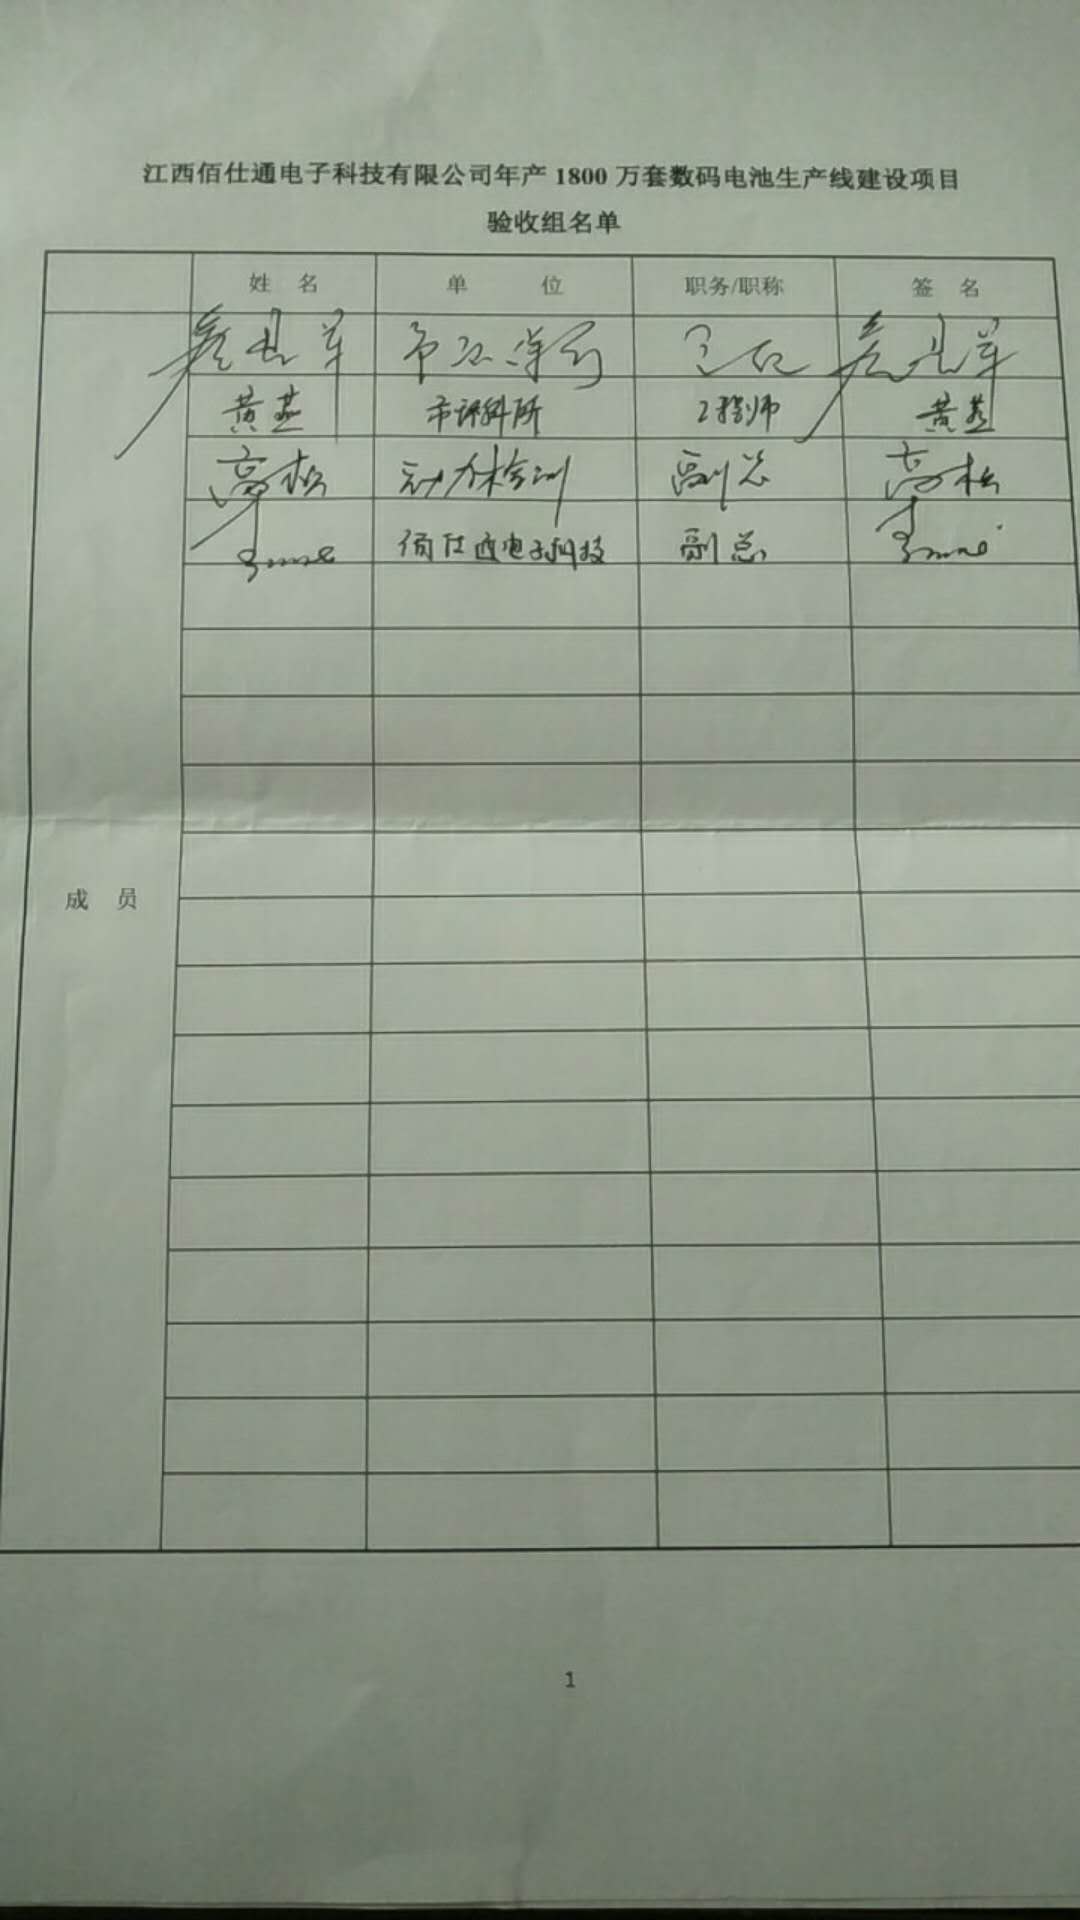 江西佰仕通电子科技有限公司年产 1800 万套数码电池生产线建设项目
验收组名单
姓 名 单 位 职务/职称 签 名
黄燕 市环科所 工程师 黄燕
高松 动力检测 副总 高松
佰仕通电子科技 副总
成 员
1